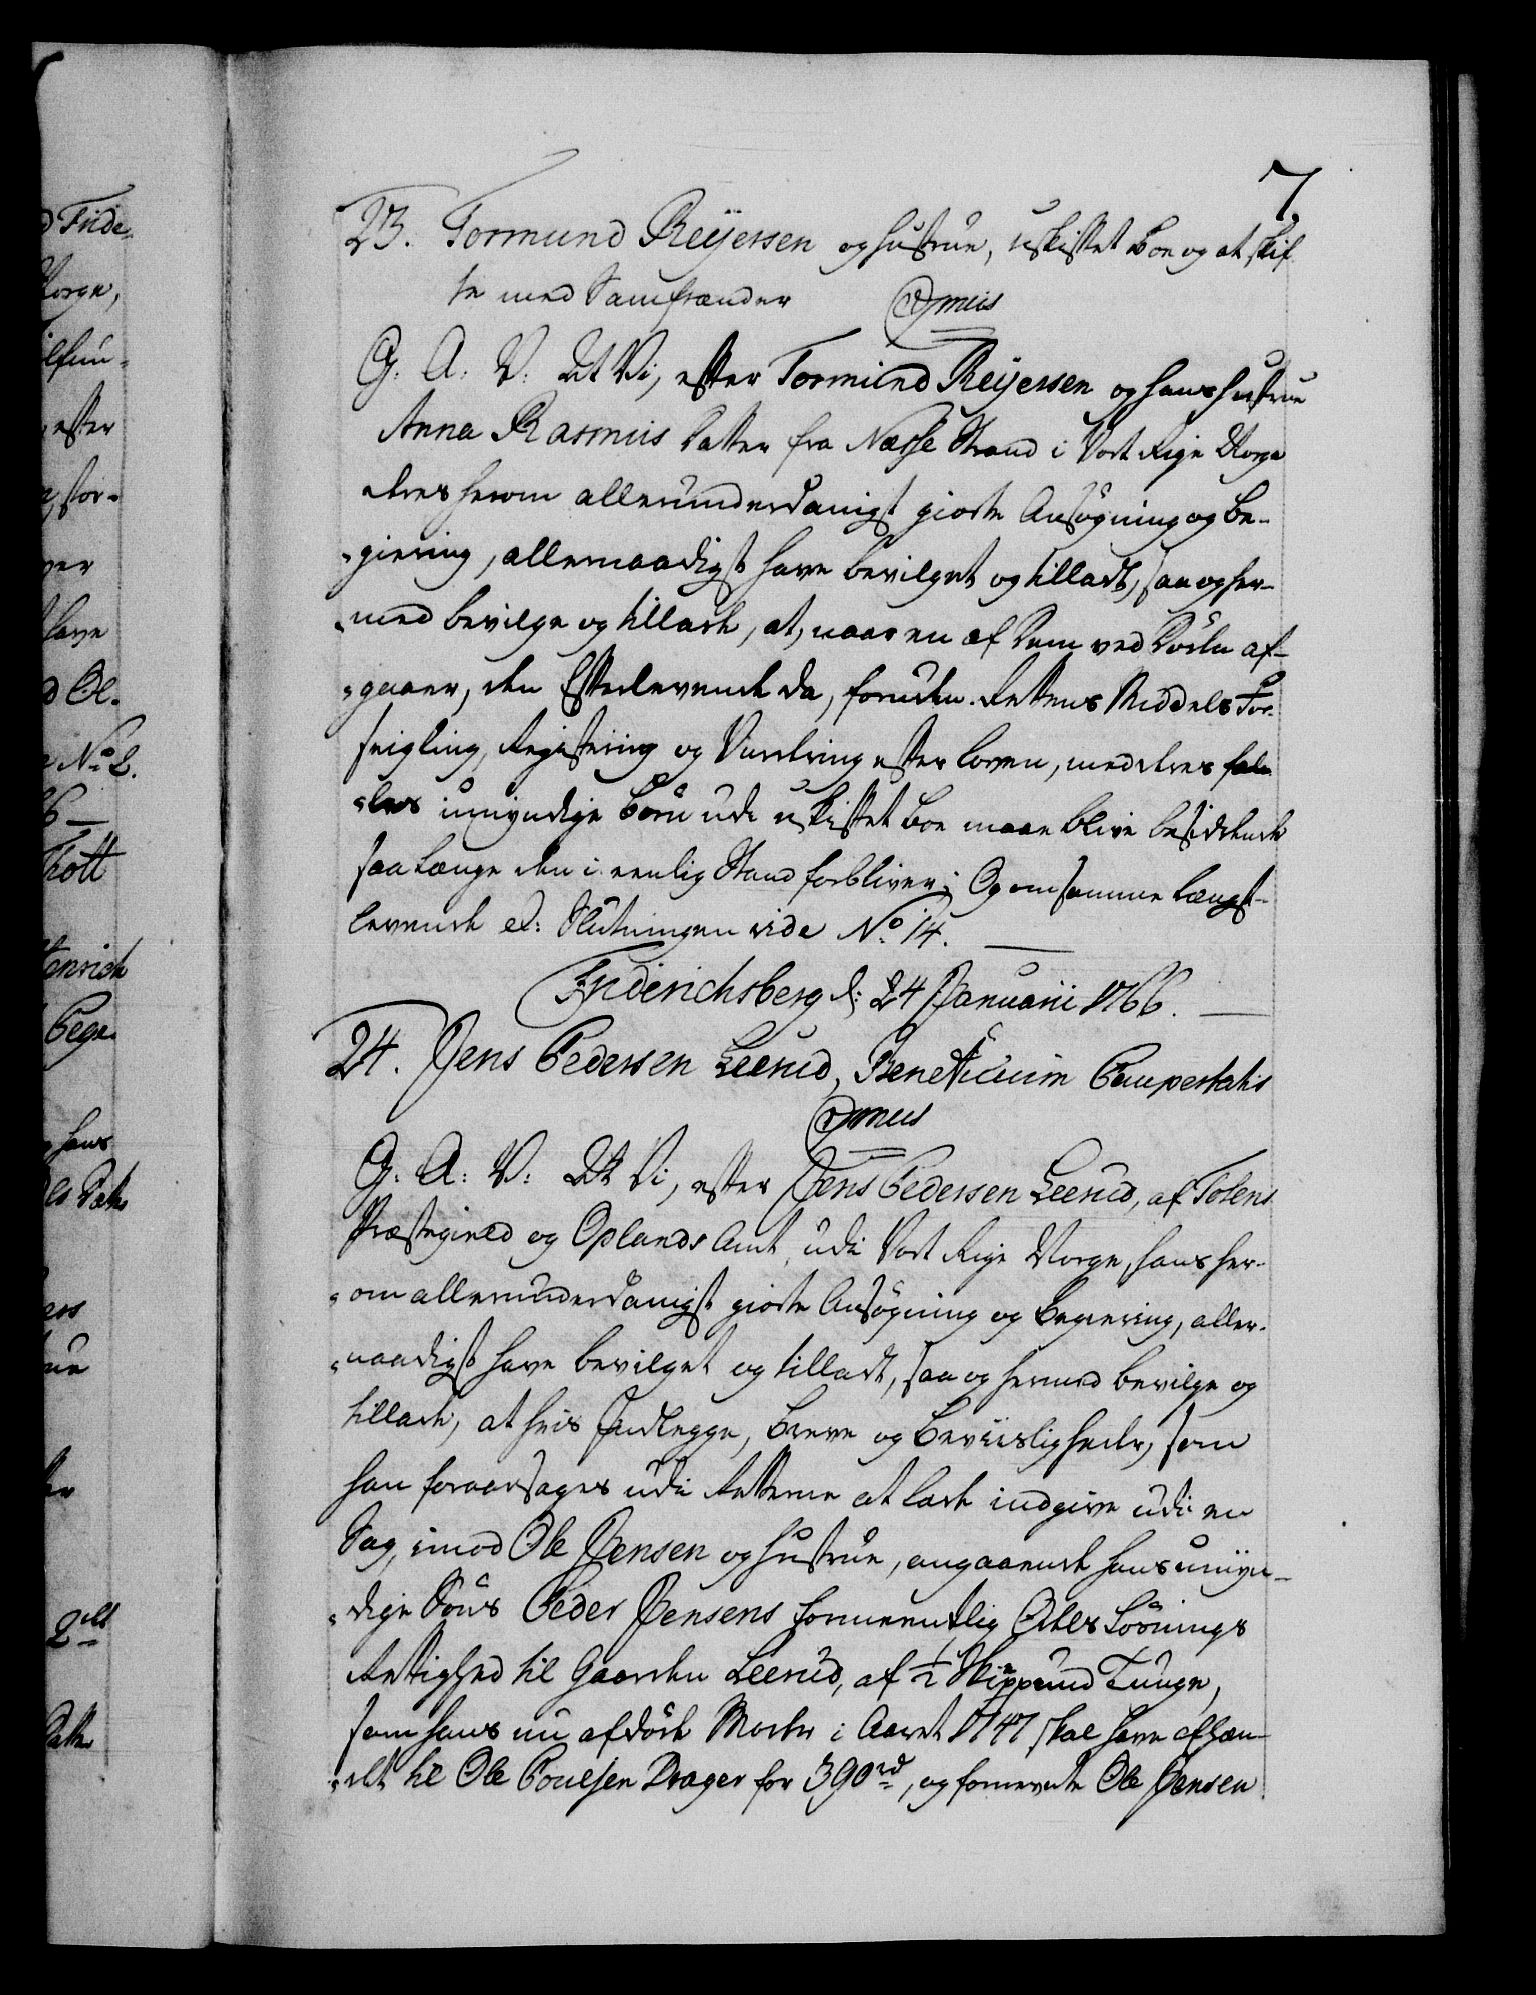 7.
23. Tormund Reijersen og Hustrue, uskiftet Boe og at skif-
te med Samfrænder Qvmus
G: A: V: At Vi, efter Tormund Reijersen og hans Hustrue
Anna Rasmus Datter fra Næsse Strand i Vort Rige Norge
deres herom allerunderdanigst giorte Ansøgning og Be-
giering, allernaadigst have bevilget og tilladt, saa og her-
med bevilge og tillade, at, naar en af Dem ved Døden af-
gaaer, den Efterlevende da, foruden Rettens Middels For-
seigling, Registering og Vurdering efter Loven, med deres fæl-
les umyndige Børn udi uskiftet Boe maae blive besiddende
saa længe den i eenlig Stand forbliver; Og om samme Længst-
levende et: Slutningen vide No 14.
Friderichsberg d: 24 Januarii 1766.
24. Jens Pedersen Leerud, Beneficium Paupertatis
Qvmus
G: A: V: At Vi, efter Jens Pedersen Leerud, af Totens
Præstegield og Oplands Amt, udi Vort Rige Norge, hans her-
om allerunderdanigst giorte Ansøgning og Begiering, aller-
naadigst have bevilget og tilladt, saa og hermed bevilge og
tillade, at hvis Indlegge, Breve og Beviisligheder, som
han foraarsages udi Retterne at lade indgive udi en
Sag, imod Ole Jensen og Hustrue, angaaende hans umyn-
dige Søns Peder Jensens formeentlig Odels Løsnings
Rettighed til Gaarden Leerud, af 1/2 Skippund Tunge,
som hans nu afdøde Moder i Aaret 1747 skal have afhæn-
det til Ole Poulsen Drager for 390 rd, og fornevnte Ole Jensen